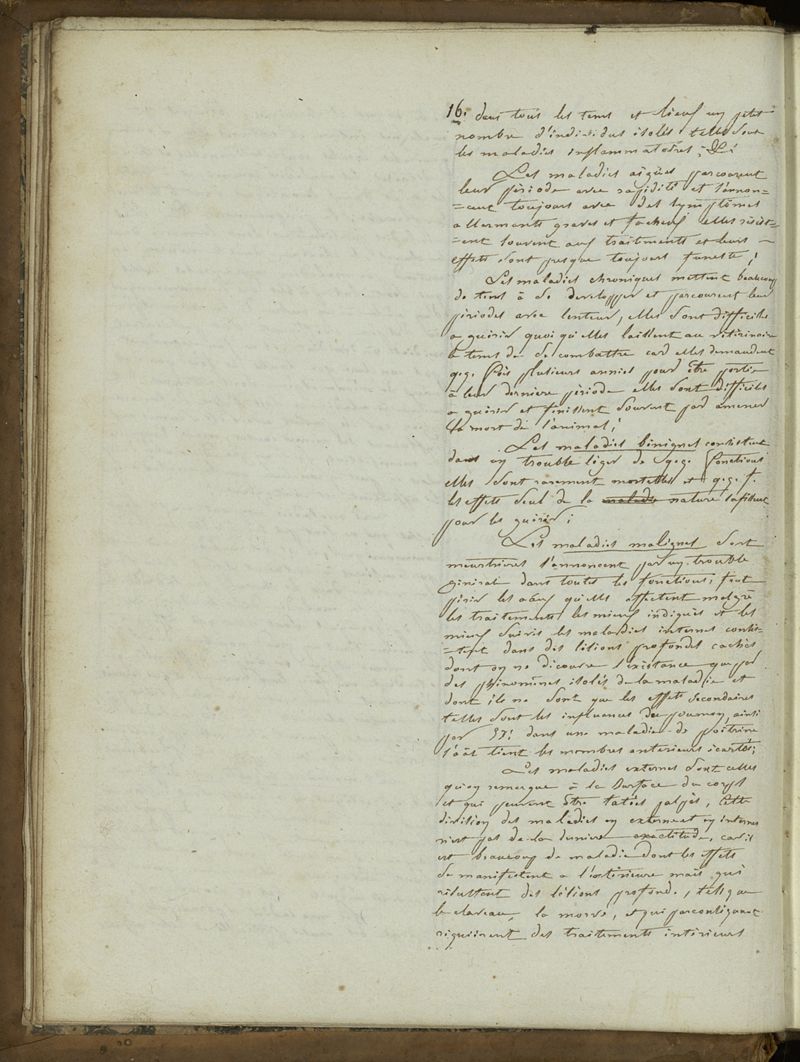 16. dans tous les tems et lieux un petit
nombre d'individus isolés telles sont
les maladies inflammatoires;
Les maladies aigües parcourent
leur période avec rapidité et s'annon=
=cent toujours avec des symptômes
allarmants graves et facheux elles résist=
=ent souvent aux traitements et leurs
effets sont presque toujours funeste;
Les maladies chroniques mettent beaucoup
de tems à se developper et parcourent leur
périodes avec lenteur, elles sont difficiles
a guérir quoi qu'elles laissent au vétérinaire
le tems de se combattre card elles demandent
q.q. fois plusieurs années pour être portée
à leur dernière période elles sont difficiles
a guérir et finissent souvent pard amener
la mort de l'animal;
Les maladies bénignes consistent
dans un trouble léger de q.q. fonctions
elles sont rarement mortelles et q.q. f.
les effets seul de la malade nature suffisent
pour les guérir;
Les maladies malignes sont
meurtrières s'annoncent par un trouble
général dans toutes les fonctions; font
périr les qu'elles affectent malgré
les traitements les mieux indiqués et les
mieux suivis les maladies internes consis=
=tent dans des lésions profondes cachées
dont on ne découvre l'existance que par
des phénomènes isolés de la maladie et
dont ils ne sont que les effets secondaires
telles sont les influences du poumon, ainsi
par dans une maladie de poitrine
tient les membres antérieurs écartés;
Les maladies externes sont celles
qu'on remarque à la surface du corps
et qui peuvent être tatées palpés, Cette
division des maladies en externe et en internes
n'est pas de la dernière exactitude, car il
est beaucoup de maladie dont les effets
se manifestent a l'extérieure mais qui
résultent des lésions profonde, tels que
le claveau, la morve, et qui par conséquent
requièrent des traitements intérieurs